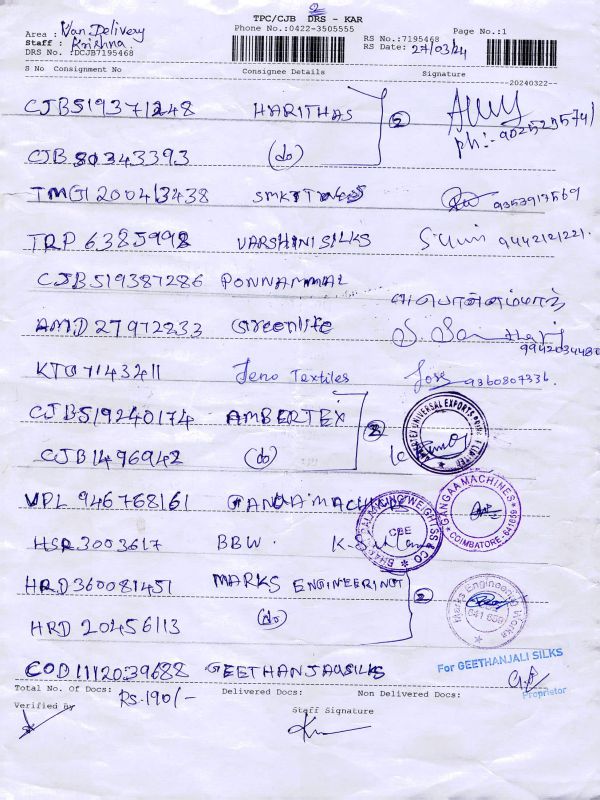 2
TPC/CJB DRS - KAR
Area : Van Delivery Phone No.:0422-3505555 RS No.:7195468 Page No.:1
Staff : Krishna RS Date: 27/03/24
DRS No.:DCJB7195468
S No Consignment No Consignee Details Signature
20240322
CJB519371248 HARITHAS 2
ph:- 9025295741
CJB 80343393 (do)
TMG1200413438 9353917569
TRP 6385998 VARSHINI SILKS 9442121221.
CJB519387286 PONNAMMAL பொன்னம்மாள்
AMD 27972233 Greenlife
9942034480
KTO7143211 Jeno Textiles Jose 9360807336.
CJB519240174 AMBERTEX 2 AMBERTEX UNIVERSAL EXPORTS PRIVATE LIMITED
CJB1496942 (do)
VPL 946768161 GANGAA MACHINE GANGAA MACHINES COIMBATORE
HSR3003617 BBW. WEIGHTSS & CO CBE
HRD360081451 MARKS ENGINEERING 2 Marks Engineering Works
HRD 20456113 (do)
COD1112039688 GEETHANJALI SILKS For GEETHANJALI SILKS
Proprietor
Total No. Of Docs: Rs.190/- Delivered Docs: Non Delivered Docs:
Verified By Staff Signature